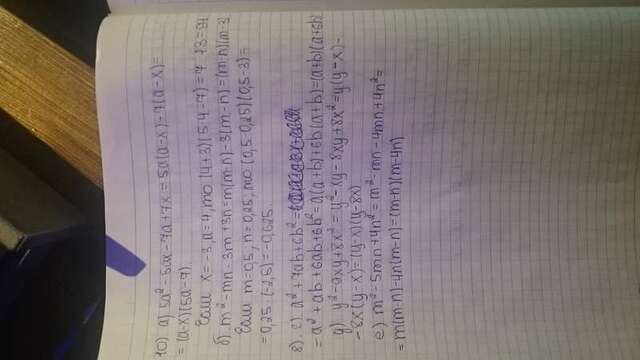 10) а) 5a² - 5ax - 7a + 7x = 5a(a-x) - 7(a-x) =
= (a-x)(5a-7)
Если x = -3, a = 4, то (4+3)(5·4-7) = 7·13 = 91
б) m² - mn - 3m + 3n = m(m-n) - 3(m-n) = (m-n)(m-3)
Если m = 0,5, n = 0,25, то (0,5-0,25)(0,5-3) =
= 0,25·(-2,5) = -0,625
8) г) a² + 7ab + 6b² =
= a² + ab + 6ab + 6b² = a(a+b) + 6b(a+b) = (a+b)(a+6b)
д) y² - 9xy + 8x² = y² - xy - 8xy + 8x² = y(y-x) -
- 8x(y-x) = (y-x)(y-8x)
е) m² - 5mn + 4n² = m² - mn - 4mn + 4n² =
= m(m-n) - 4n(m-n) = (m-n)(m-4n)